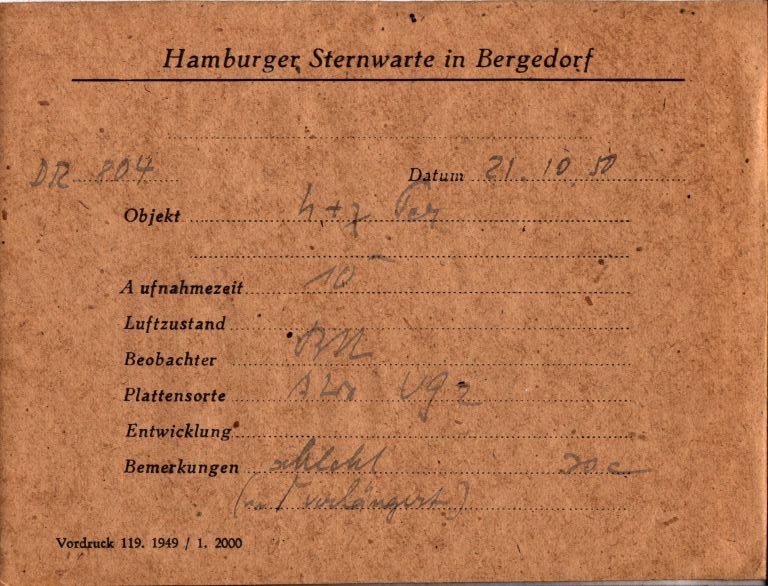 Hamburger Sternwarte in Bergedorf
DR 804 Datum 21. 10. 50
Objekt h + χ Per
Aufnahmezeit 10
Luftzustand
Beobachter
Plattensorte
Entwicklung
Bemerkungen schlecht
verlängert)
Vordruck 119. 1949 / 1. 2000